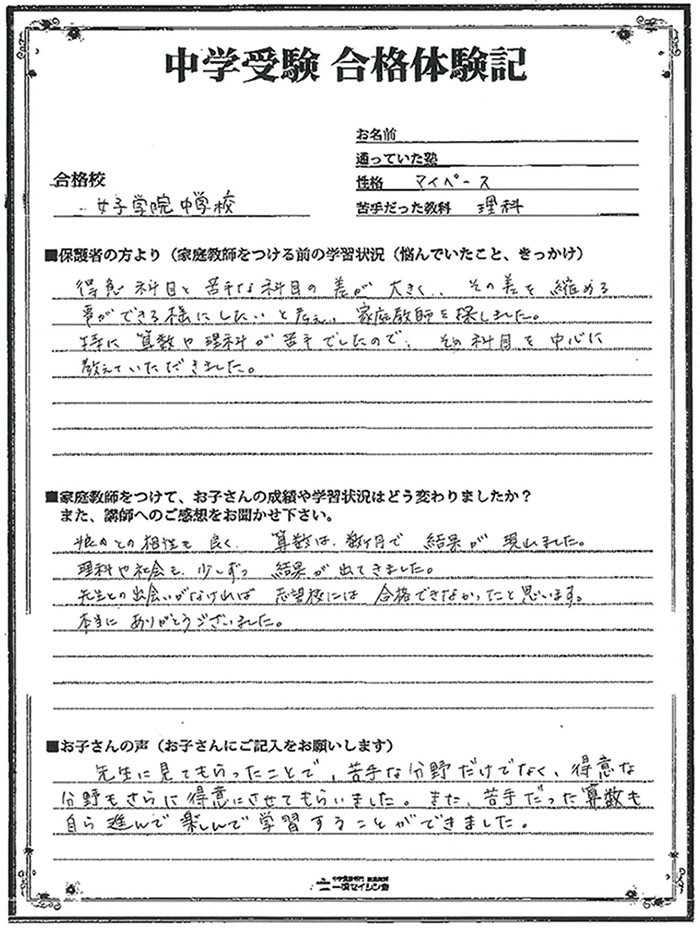 中学受験 合格体験記
お名前
通っていた塾
合格校
性格 マイペース
女子学院中学校
苦手だった教科 理科
■保護者の方より（家庭教師をつける前の学習状況（悩んでいたこと、きっかけ）
得意科目と苦手な科目の差が大きく、その差を縮める
事ができる様にしたいと考え、家庭教師を探しました。
特に算数や理科が苦手でしたので、その科目を中心に
教えていただきました。
■家庭教師をつけて、お子さんの成績や学習状況はどう変わりましたか？
また、講師へのご感想をお聞かせ下さい。
娘との相性も良く、算数は、数ヶ月で結果が現れました。
理科や社会も、少しずつ結果が出てきました。
先生との出会いがなければ志望校には合格できなかったと思います。
本当にありがとうございました。
■お子さんの声（お子さんにご記入をお願いします）
先生に見てもらったことで、苦手な分野だけでなく、得意な
分野もさらに得意にさせてもらいました。また、苦手だった算数も
自ら進んで楽しんで学習することができました。
一橋セイシン会